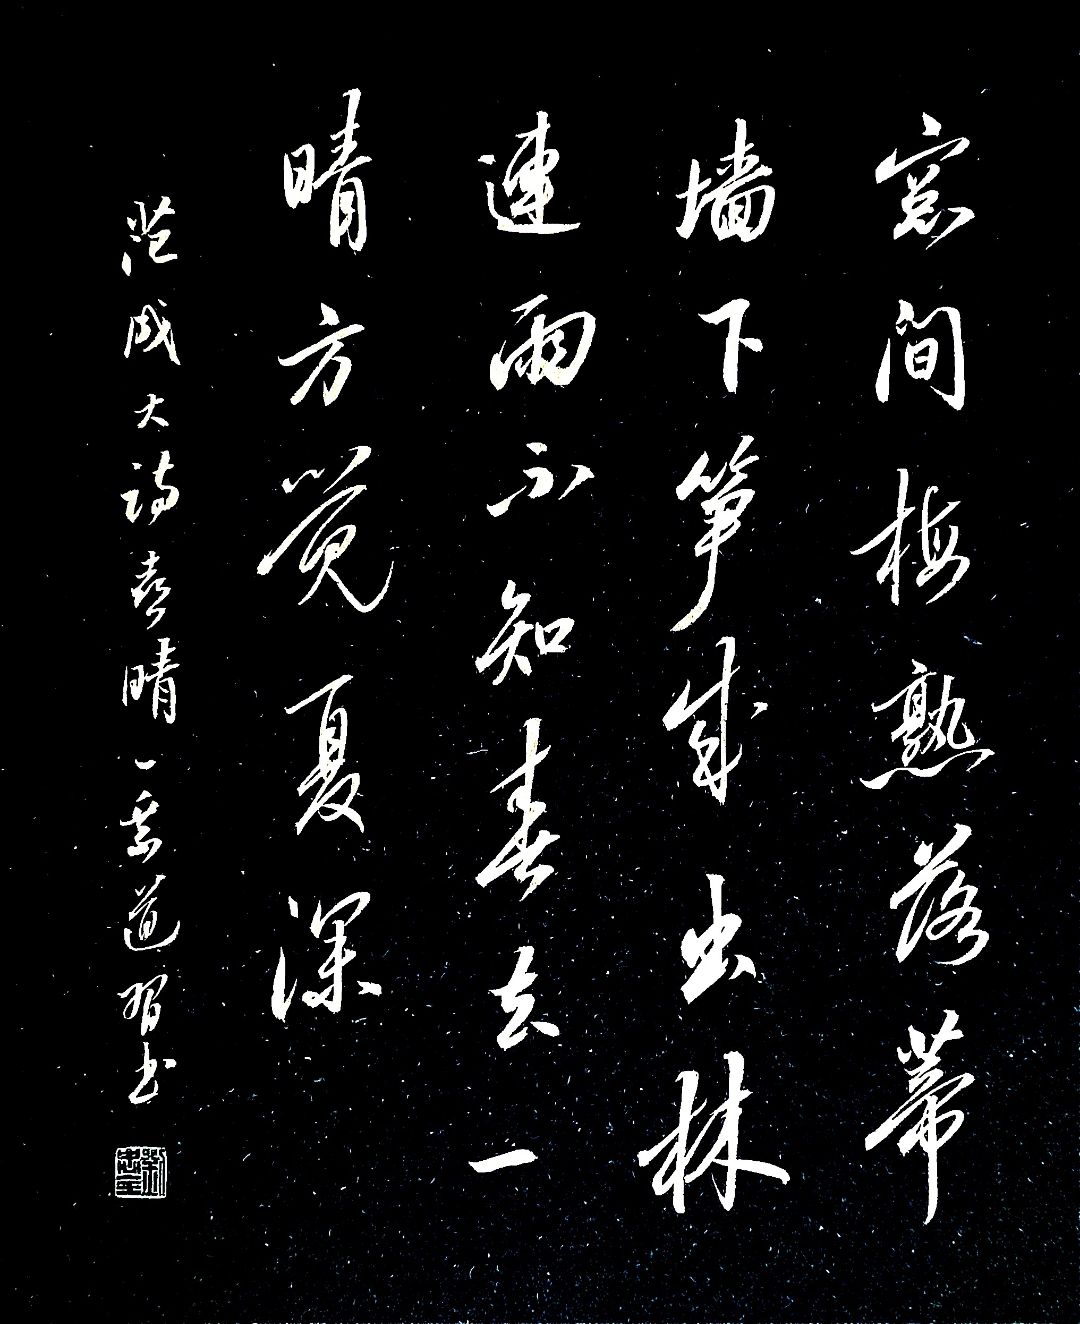 窓间梅熟落蒂
墙下笋成出林
連雨不知春去一
晴方觉夏深
范成大诗喜晴一
道習书